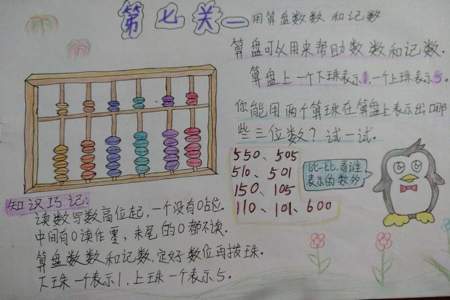 第七关—用算盘数数和记数
算盘可以用来帮助数数和记数.
算盘上一个下珠表示1,一个上珠表示5。
你能用两个算珠在算盘上表示出哪
些三位数？试一试.
550、505
510、501
150、105
110、101、600
比一比,看谁
表示的数多
知识巧记:
读数写数高位起,一个没有0占位
中间有0读作零,末尾的0都不读.
算盘数数和记数,定好数位再拨珠.
下珠一个表示1,上珠一个表示5.